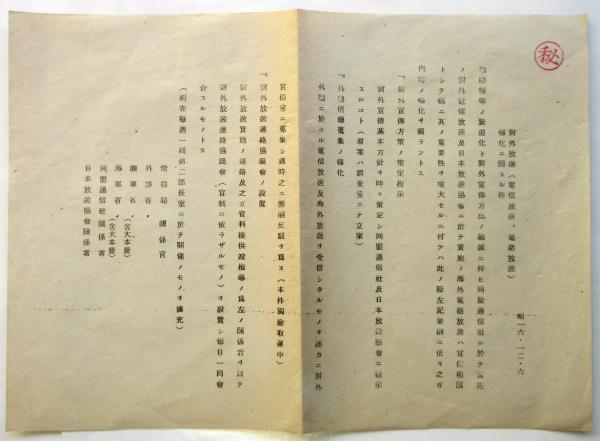 ㊙
昭一六・一二・六
對外放送(電信放送、電話放送)
強化ニ關スル件
國際情勢ノ緊迫化ト對外宣傳方法ノ ニ伴ヒ同盟通信社ニ於テ實施
ノ對外電信放送及日本放送協會ニ於テ實施ノ海外電話放送ハ宣傳機關
トシテ頓ニ其ノ重要性ヲ增大セルニ付テハ此ノ際左記要領ニ依リ之ガ
內容ノ強化ヲ圖ラントス
一、對外宣傳方策ノ策定指示
對外宣傳基本方針ヲ時々策定シ同盟通信社及日本放送協會ニ指示
スルコト(原案ハ調査室ニテ立案)
一、外國情報蒐集ノ強化
外國ニ於ケル電信放送及海外放送ヲ受信シタルモノヲ速カニ對外
宣傳室ニ蒐集シ適時之ニ應酬反駁ヲ爲ス(本件 取運中)
一、對外放送連絡協議會ノ設置
對外放送實施ノ連絡及之ガ資料提供竝指導ノ爲左ノ關係者ヲ以テ
對外放送連絡協議會(官制ニ依ラザルモノ)ヲ設置シ每日一囘會
合スルモノトス
(現在每週一囘第二部長室ニ於テ開催ノモノヲ擴充)
情報局 關係官
外務省 〃
陸軍省 〃(含大本營)
海軍省 〃(含大本營)
同盟通信社關係者
日本放送協會關係者